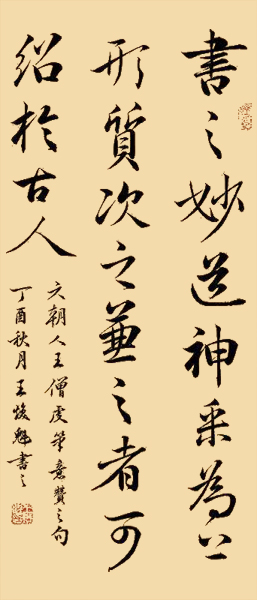 書之妙道神采為上
形質次之兼之者可
紹於古人
六朝人王僧虔筆意贊之句
丁酉秋月王焌魁書之